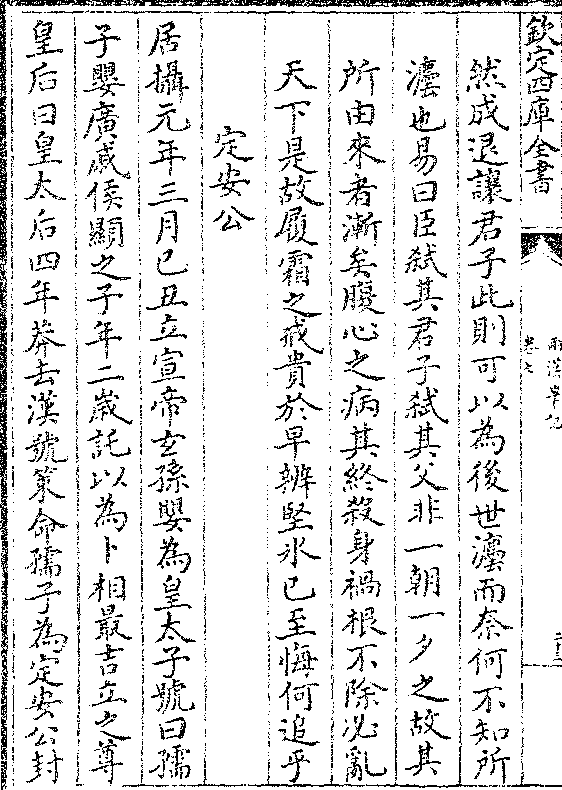 欽定四庫全書
兩漢筆記
然成退讓君子此則可以為後世灋而奈何不知所
灋也易曰臣弑其君子弑其父非一朝一夕之故其
所由來者漸矣腹心之病其終殺身禍根不除必亂
天下是故履霜之戒貴於早辨堅氷已至悔何追乎
定安公
居攝元年三月己丑立宣帝玄孫嬰為皇太子號曰孺
子嬰廣戚侯顯之子年二嵗託以為卜相最吉立之尊
皇后曰皇太后四年莽去漢號策命孺子為定安公封